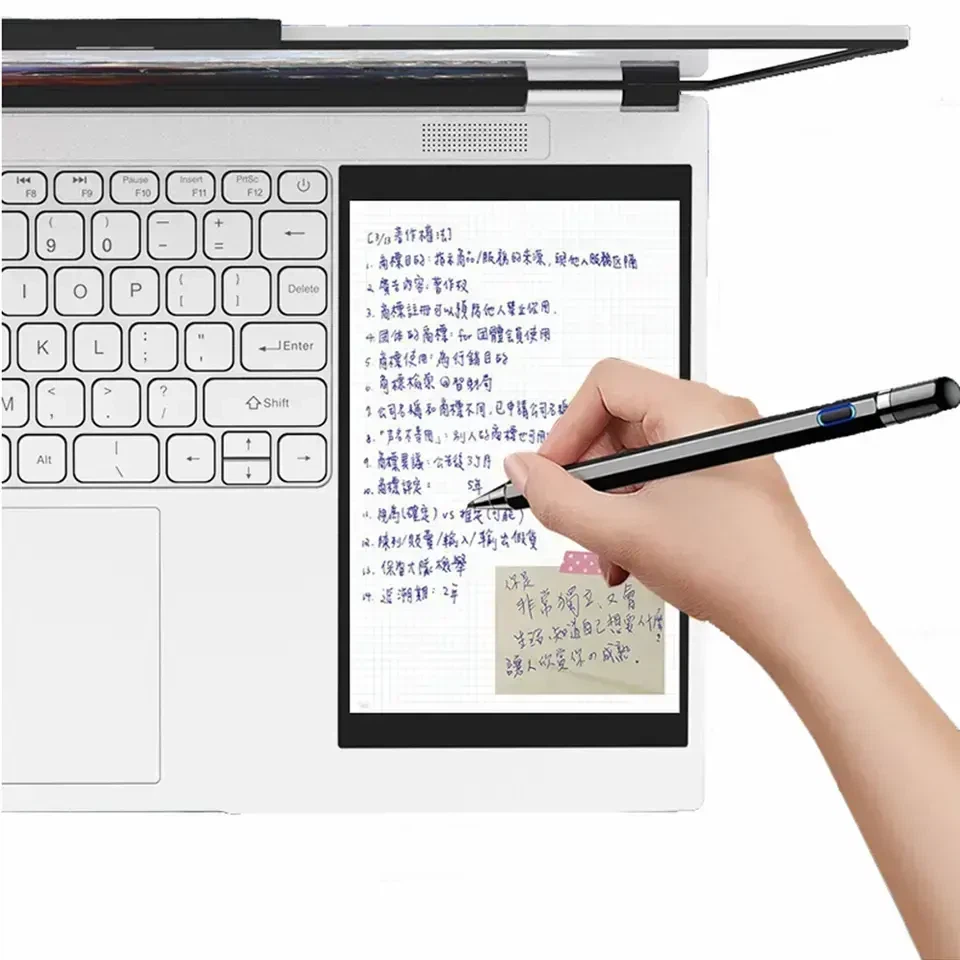 F8 F9 Pause F10 Insert F11 PrtSc F12
( 9 ) 0 _ - + = ←
I O P { [ } ] Delete
K L : ; " ' Enter
M < , > . ? / Shift
Alt | \ ← ↑ ↓ →
[3/13 著作權法]
1. 商標目的：指示商品/服務的來源，與他人服務區隔
2. 廣告內容：著作權
3. 商標註冊可以預防他人禁止使用.
4. 团体的商標：for 团體会員使用
5. 商標使用：為行銷目的
6. 商標檢索@智財局
7. 公司名稱和商標不同，已申請公司名稱
8. 別人的商標也可用
9. 商標異議：公告後3ヶ月
10. 商標評定： 5年
11. (確定) vs (可能)
12. 陳列/販賣/輸入/輸出假貨
13. 保智大隊 檢舉
14. 追溯期：2年
你是
非常獨立、又會
生活、知道自己想要什麼?
讓人欣賞你の成熟.